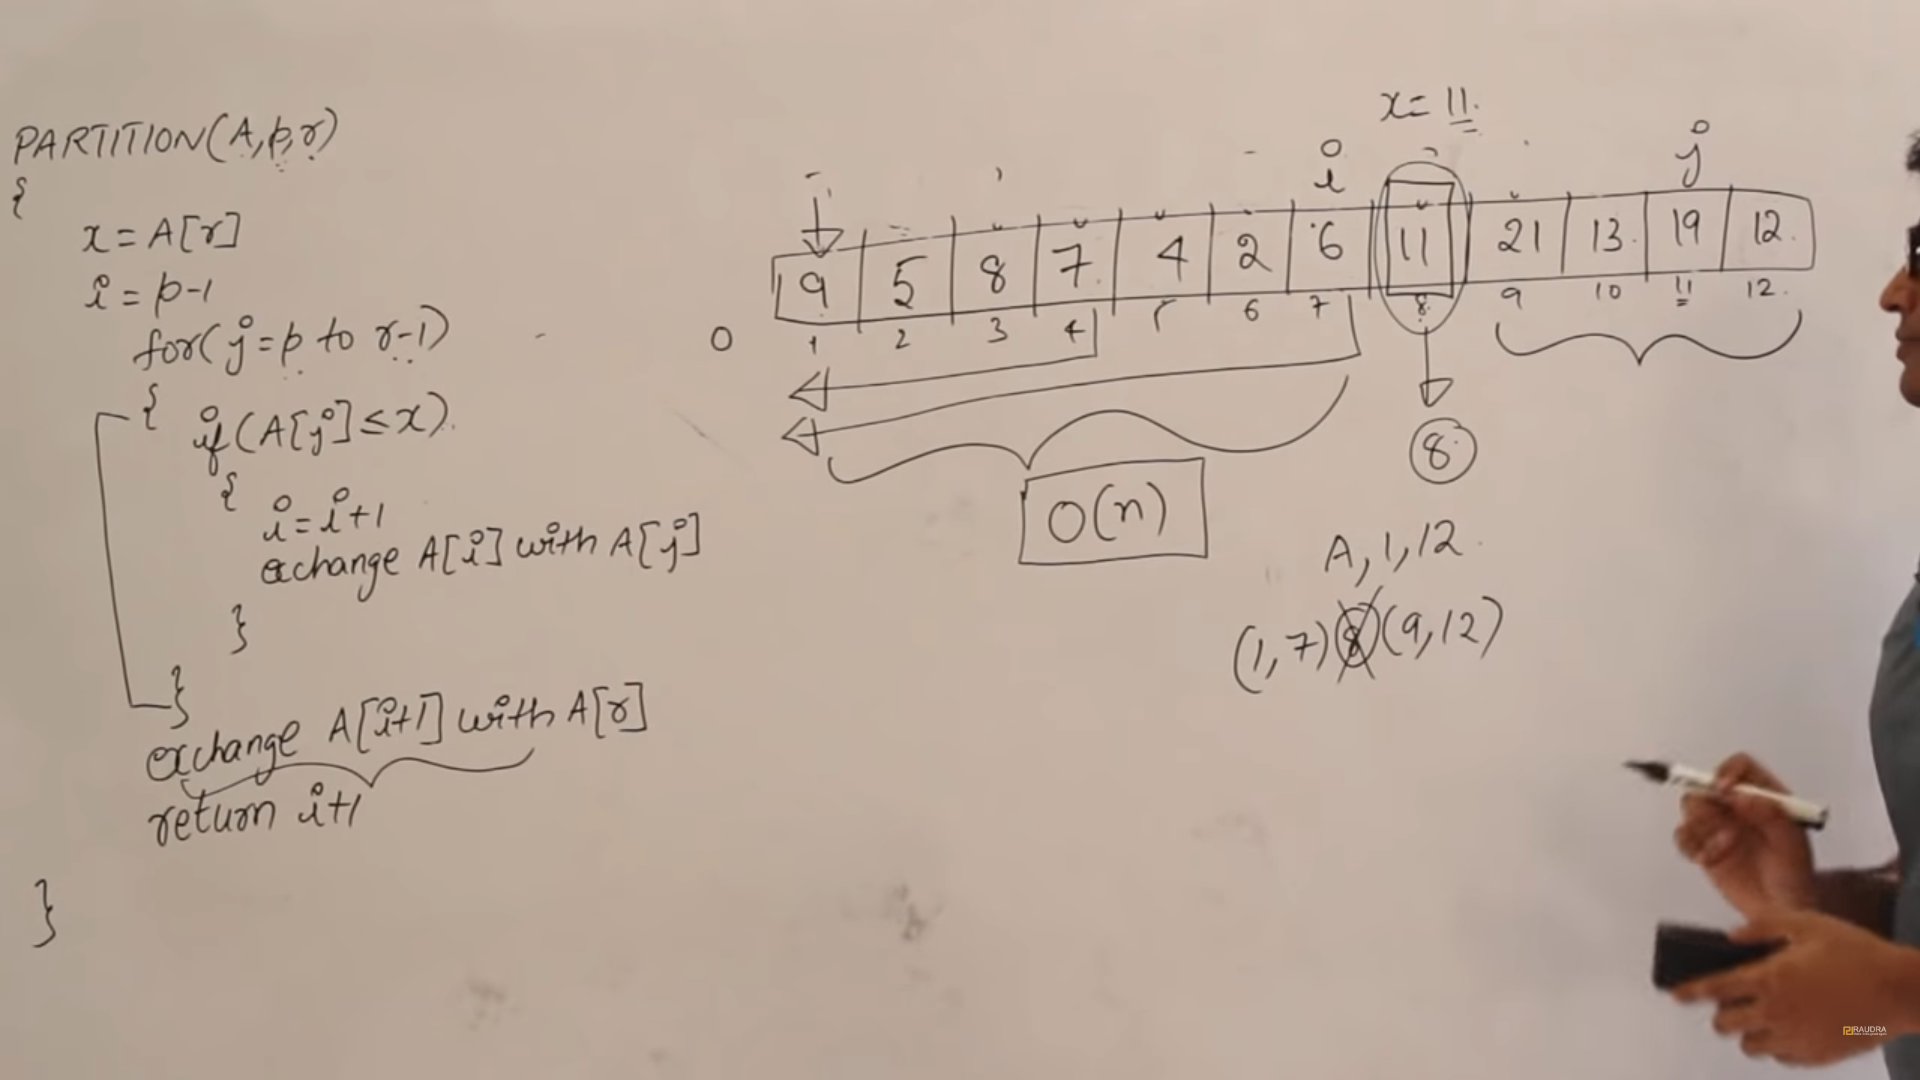 PARTITION(A,p,r)
{
x = A[r]
i = p-1
for(j=p to r-1)
{
if(A[j]≤x)
{
i=i+1
exchange A[i] with A[j]
}
}
exchange A[i+1] with A[r]
return i+1
}
x = 11
i j
9 5 8 7 4 2 6 11 21 13 19 12
0 1 2 3 4 5 6 7 8 9 10 11 12
8
O(n)
A, 1, 12
(1,7) 8 (9,12)
RAUDRA